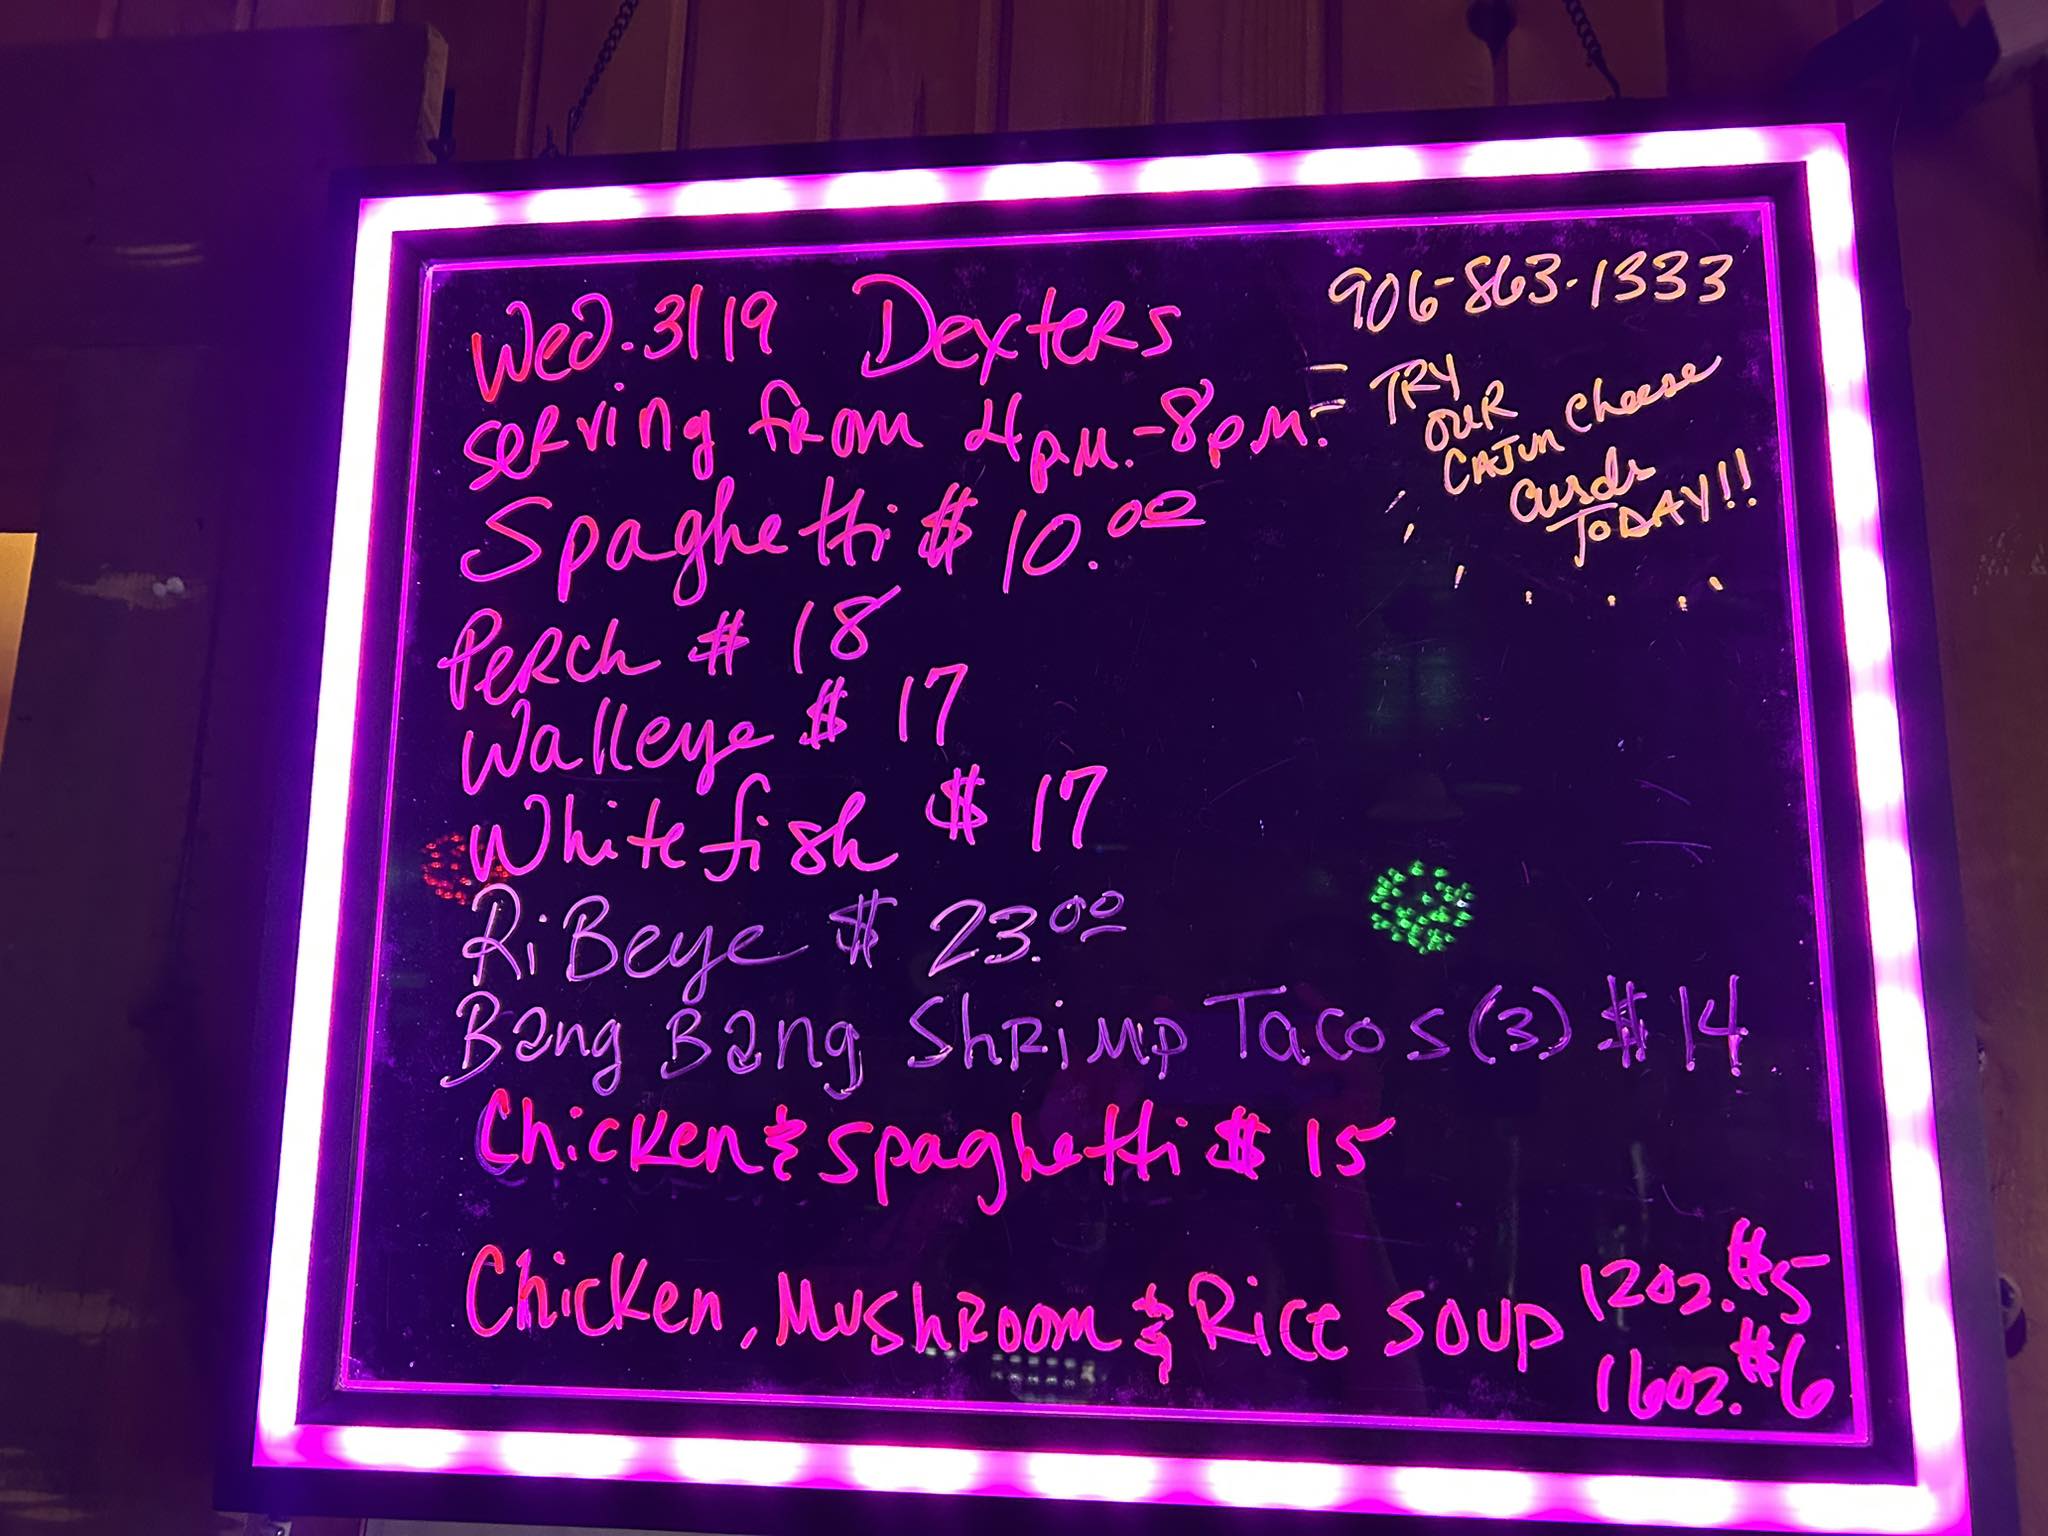 Wed. 3/19 Dexters
906-863-1333
serving from 4p.m.-8p.m.
TRY
OUR
CAJUN Cheese
Curds
TODAY!!
Spaghetti $10.00
Perch $18
Walleye $17
Whitefish $17
RiBeye $23.00
Bang Bang Shrimp Tacos (3) $14
Chicken & Spaghetti $15
Chicken, Mushroom & Rice Soup 12oz. $5
16oz. $6